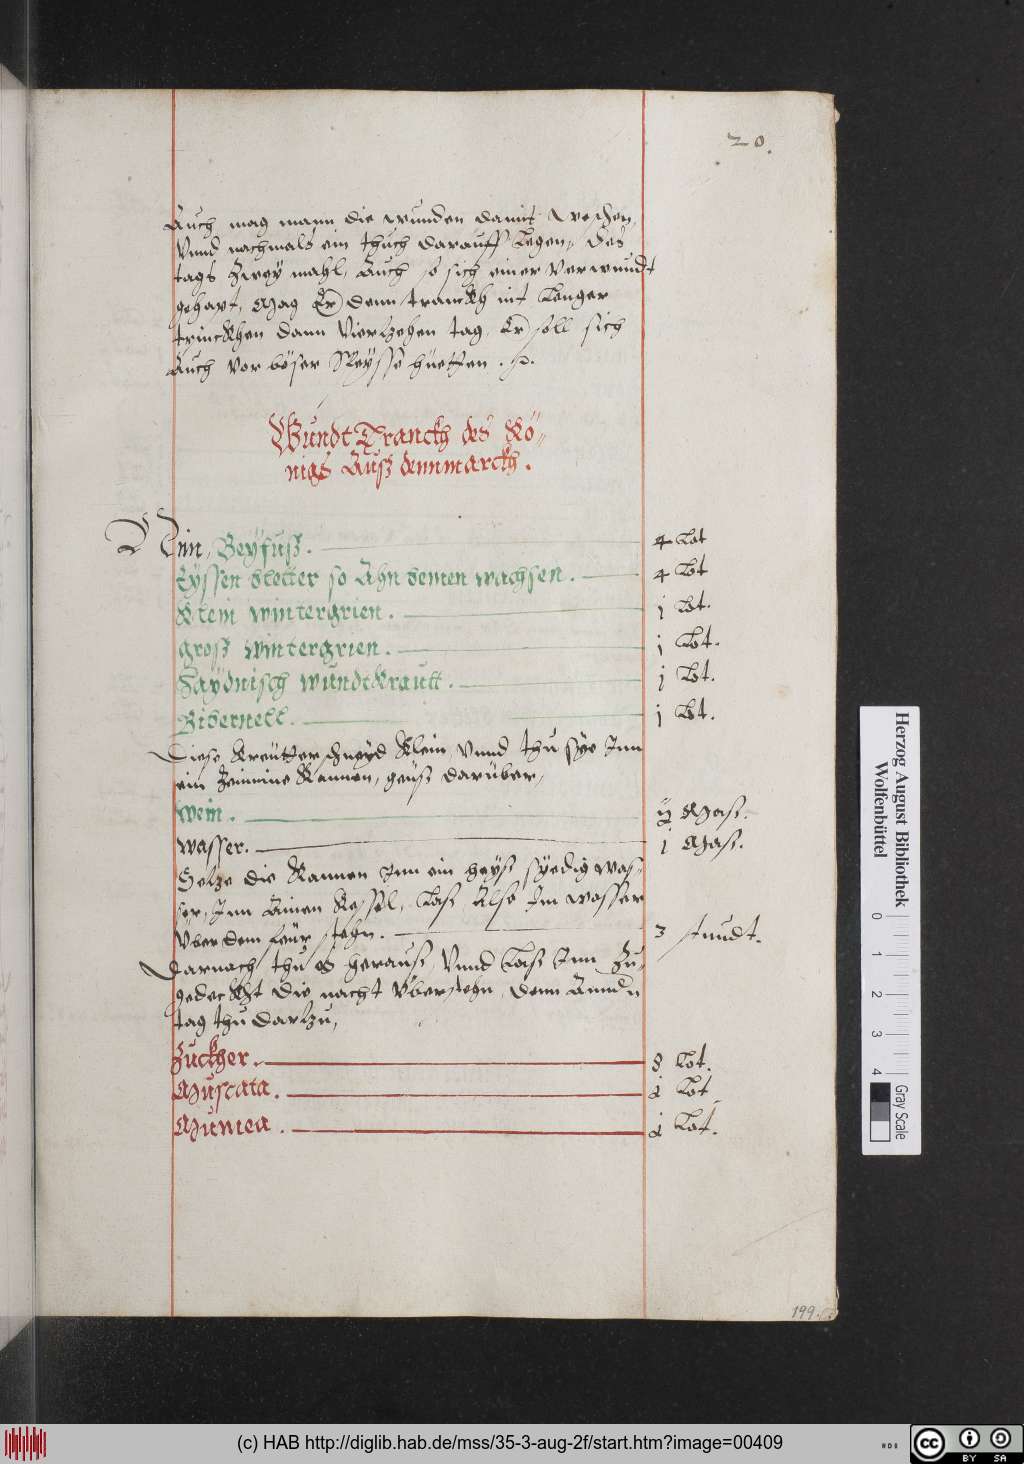 20.
Auch mag mann die wunden damit weschen,
Vnnd nachmals ein thuch darauff Legen, des
tags Zwey mahl, Auch so sich einer Verwundt
gehapt, Mag Er denn tranckh nit Lenger
trinckhen dann Vierzehen tag, Er soll sich
Auch Vor böser Speysse hüetten.
Wundt Tranckh des Kö„
nigs Auß dennmarckh.
Nim, Beyfuß. 4 Lot
Eyssen bletter so Ahn demen wachsen. 4 Lot
Klein wintergrien. j Lot.
groß wintergrien. j Lot.
Haydnisch wundtkrautt. j Lot.
Bibernell. j Lot.
Diese Kreütter schneyd Klein, Vnnd thu sye Inn
ein Zeinnine Kannen, geuß darüber,
Wein. ij Mass.
Wasser. j Mass.
Setze die Kannen Inn ein heyß syedig was„
ser, Inn Ainen Kessel, Lass Also Im wasser
Vber dem feür stehn. 3 stundt.
Darnach thu es herauß, Vnnd Lass Inn Zu„
gedeckht die nacht Vberstehn, denn Anndn
tag thu darzu,
Zuckher. 8 Lot.
Muscata. j Lot
Mumea. j Lot.
199.
Herzog August Bibliothek
Wolfenbüttel
0 1 2 3 4
Gray Scale
(c) HAB http://diglib.hab.de/mss/35-3-aug-2f/start.htm?image=00409
cc BY SA